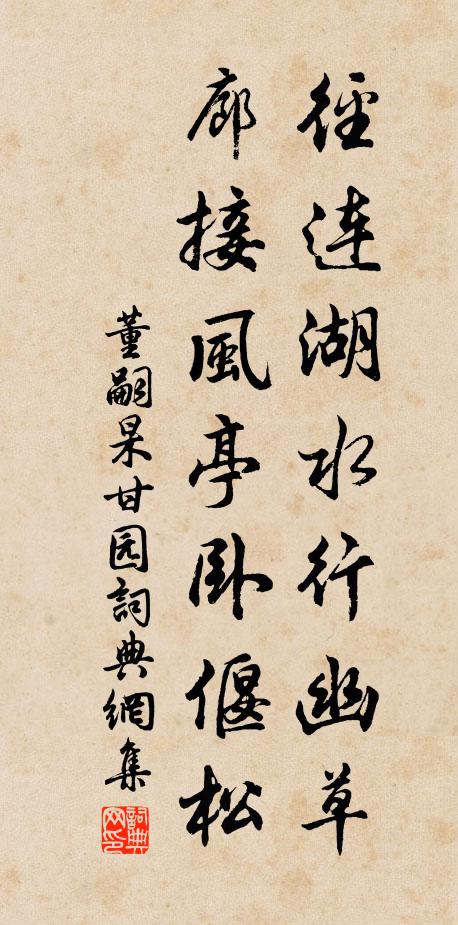 徑連湖水行幽草
廊接風亭卧偃松
董嗣杲甘园詞典網集
詞典网印